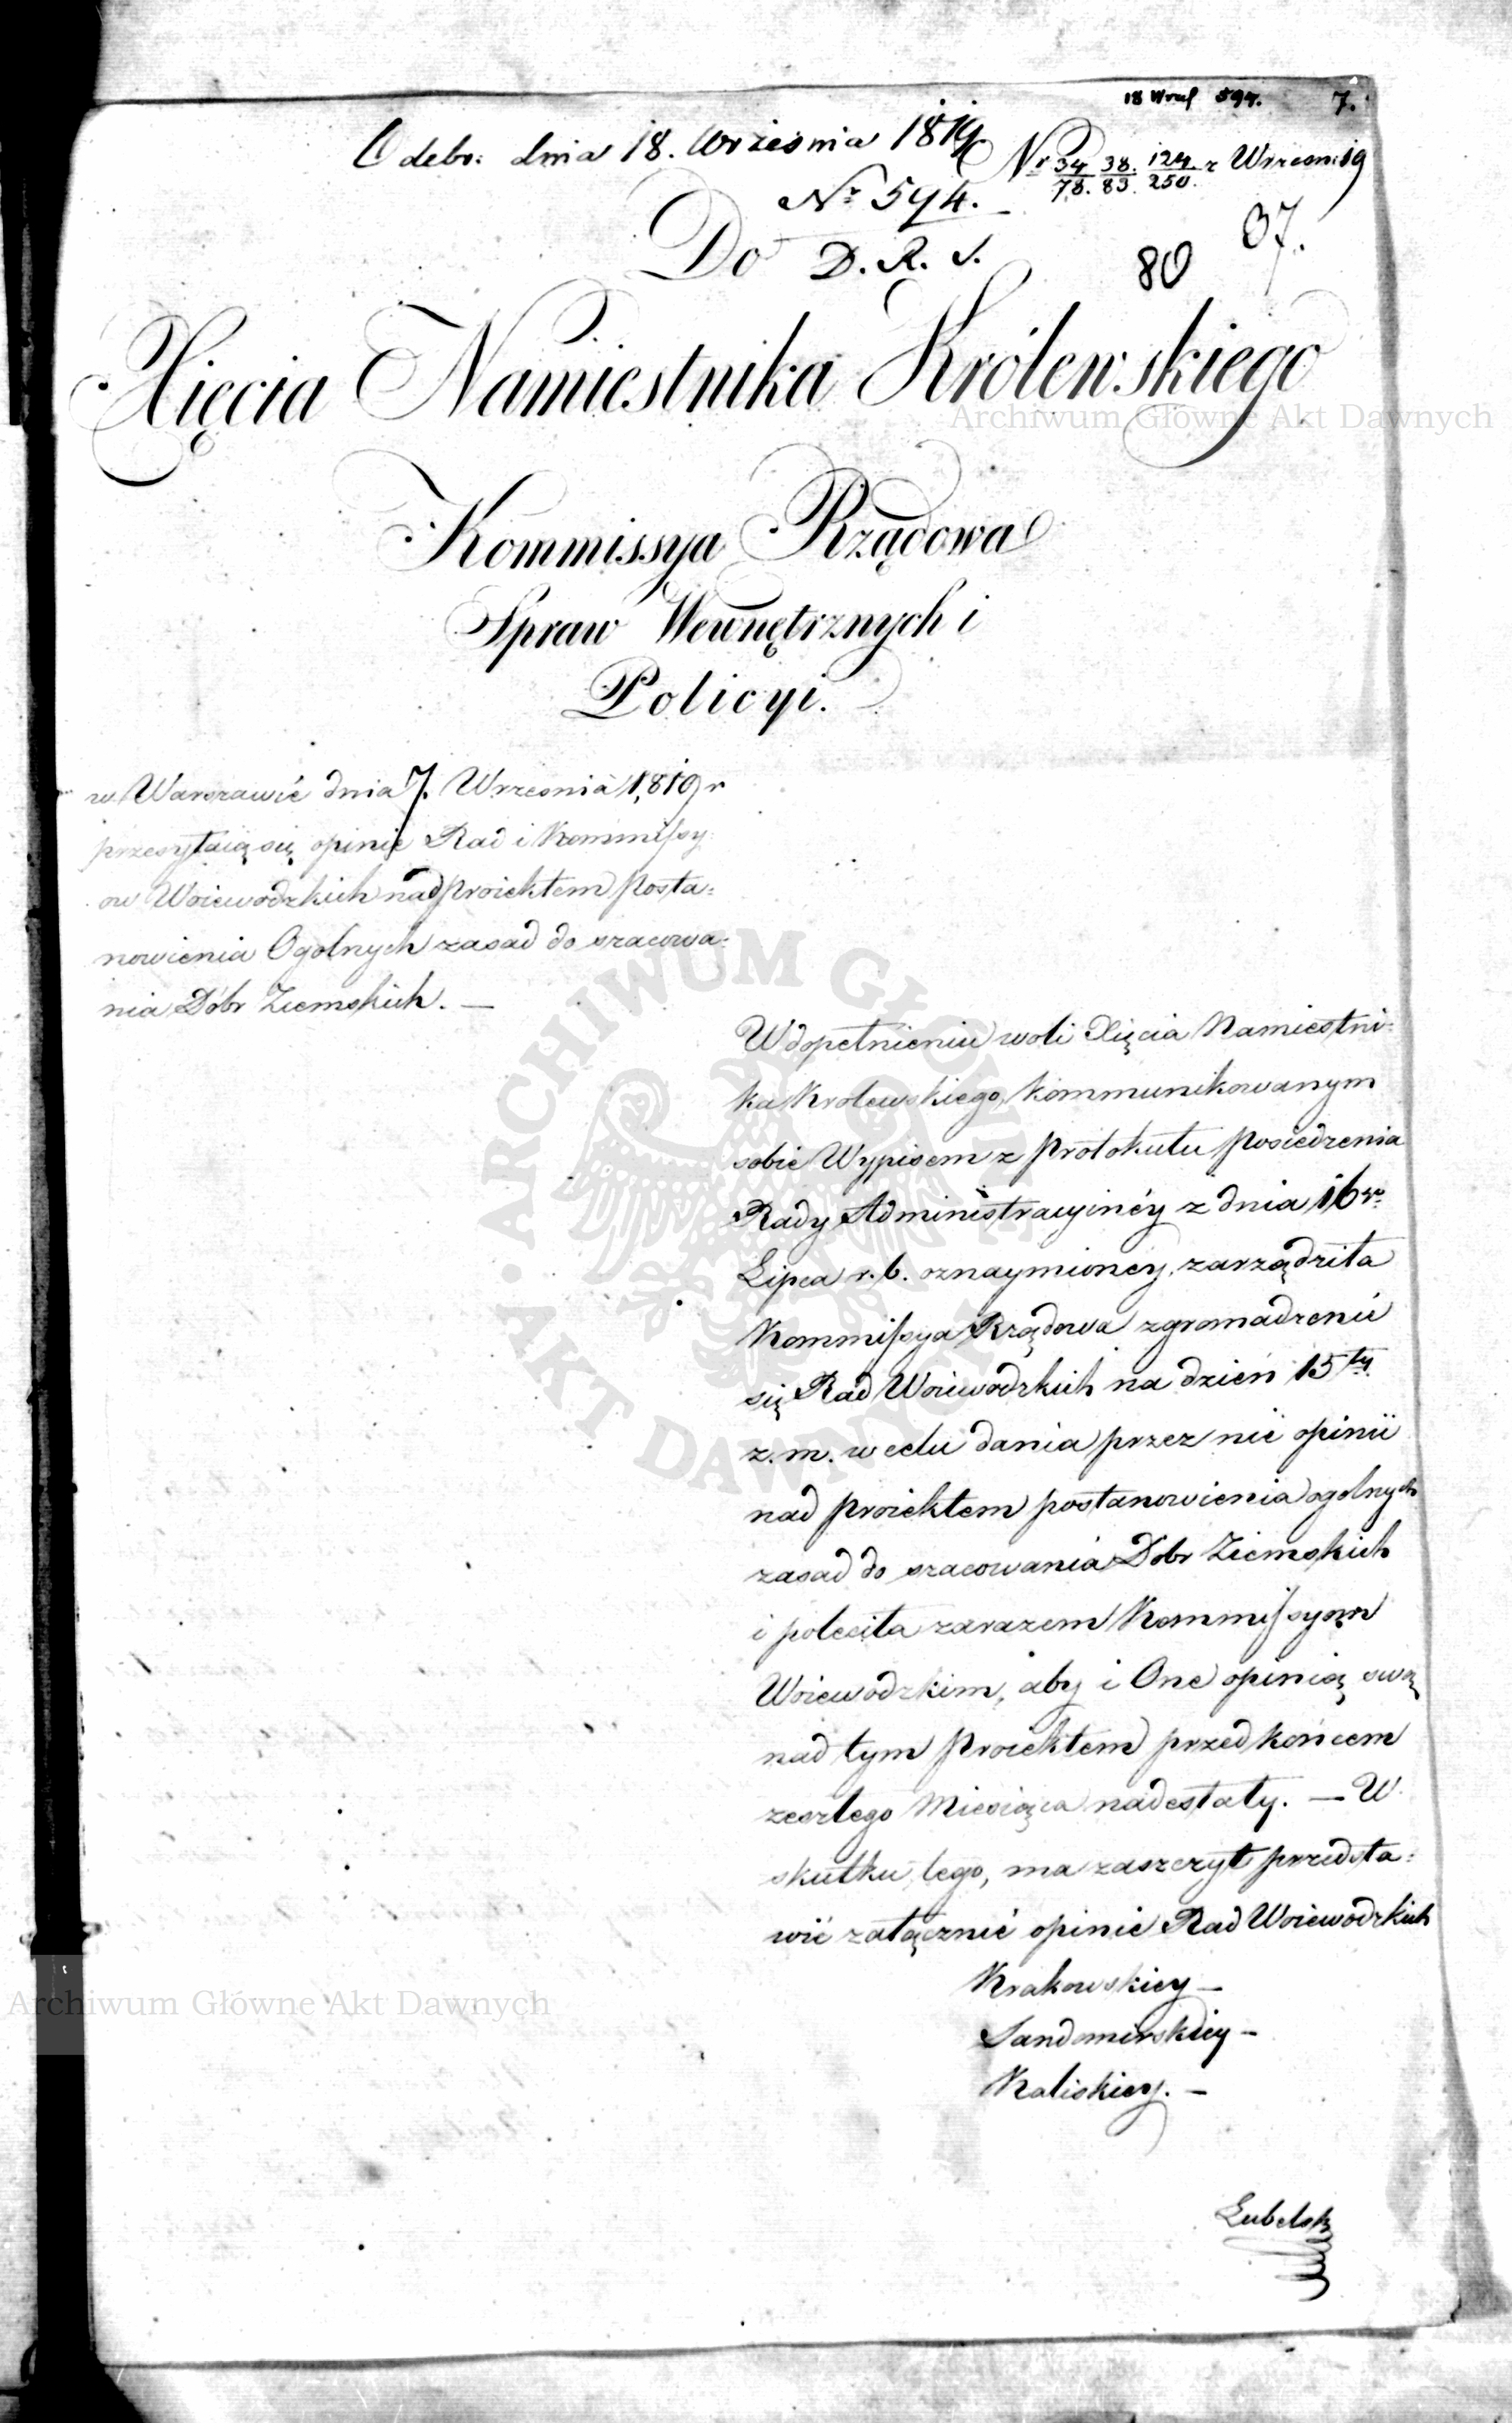 18 Wrześ 594. 7.
Odebr: dnia 18. Września 1819
Nr 34/78. 38./83. 124./250. z Wrześni 19
Nr 594.
D. R. S.
80 37.
Do
Xięcia Namiestnika Królewskiego
Archiwum Główne Akt Dawnych
Kommissya Rządowa
Spraw Wewnętrznych i
Policyi.
w Warszawie dnia 7. Września 1819 r
przesyłaią się opinie Rad i Kommissy
ow Woiewodzkich nad proiektem posta:
nowienia Ogolnych zasad do szacowa:
nia Dóbr Ziemskich. —
ARCHIWUM GŁÓWNE
AKT DAWNYCH
W dopełnieniu woli Xięcia Namiestni:
ka Krolewskiego kommunikowanym
sobie Wypisem z protokułu posiedzenia
Rady Administracyinéy z dnia 16 go
Lipca r. b. oznaymionéy, zarządziła
Kommissya Rządowa zgromadzenie
się Rad Woiewodzkich na dzień 15 ty
z. m. w celu dania przez nie opinii
nad proiektem postanowienia ogolnych
zasad do szacowania Dobr Ziemskich
i poleciła zarazem Kommissyom
Woiewodzkim, aby i One opinią swą
nad tym proiektem przed końcem
zeszłego Miesiąca nadesłały. — W
skutku tego, ma zaszczyt przedsta:
wić załącznie opinie Rad Woiewodzkich
Krakowskiey —
Archiwum Główne Akt Dawnych
Sandomirskiey —
Kaliskiey. —
Lubelsk